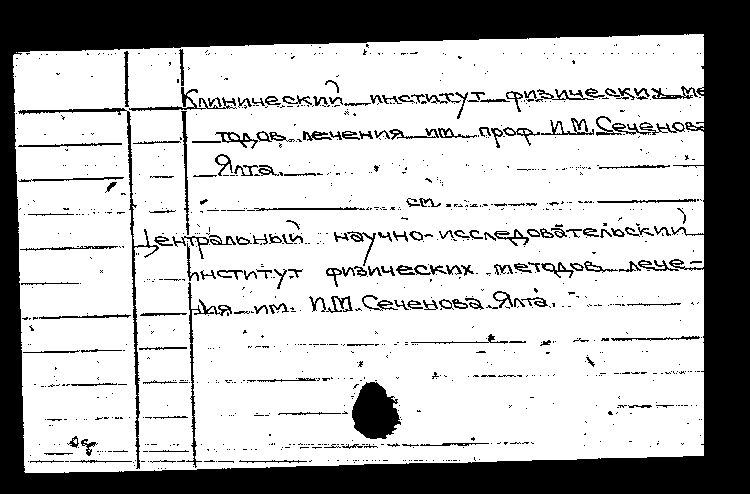 Клинический институт физических ме
тодов лечения им. проф. И.М. Сеченова
Ялта.
см.
Центральный научно-исследовательский
институт физических методов лече-
ния им. И.М. Сеченова. Ялта.